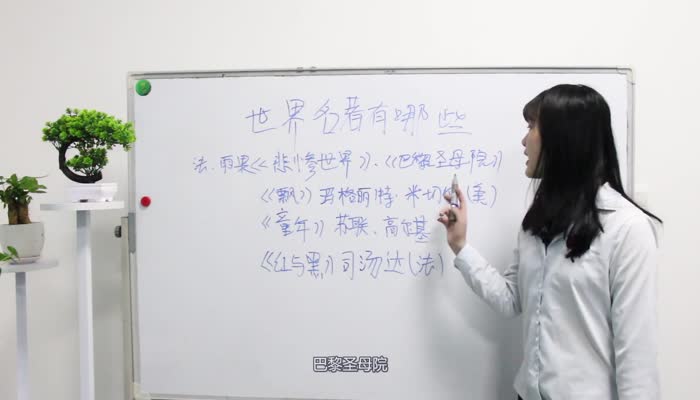 世界名著有哪些
法.雨果《悲惨世界》、《巴黎圣母院》
《飘》玛格丽特·米切尔(美)
《童年》苏联、高尔基
《红与黑》司汤达(法)
巴黎圣母院